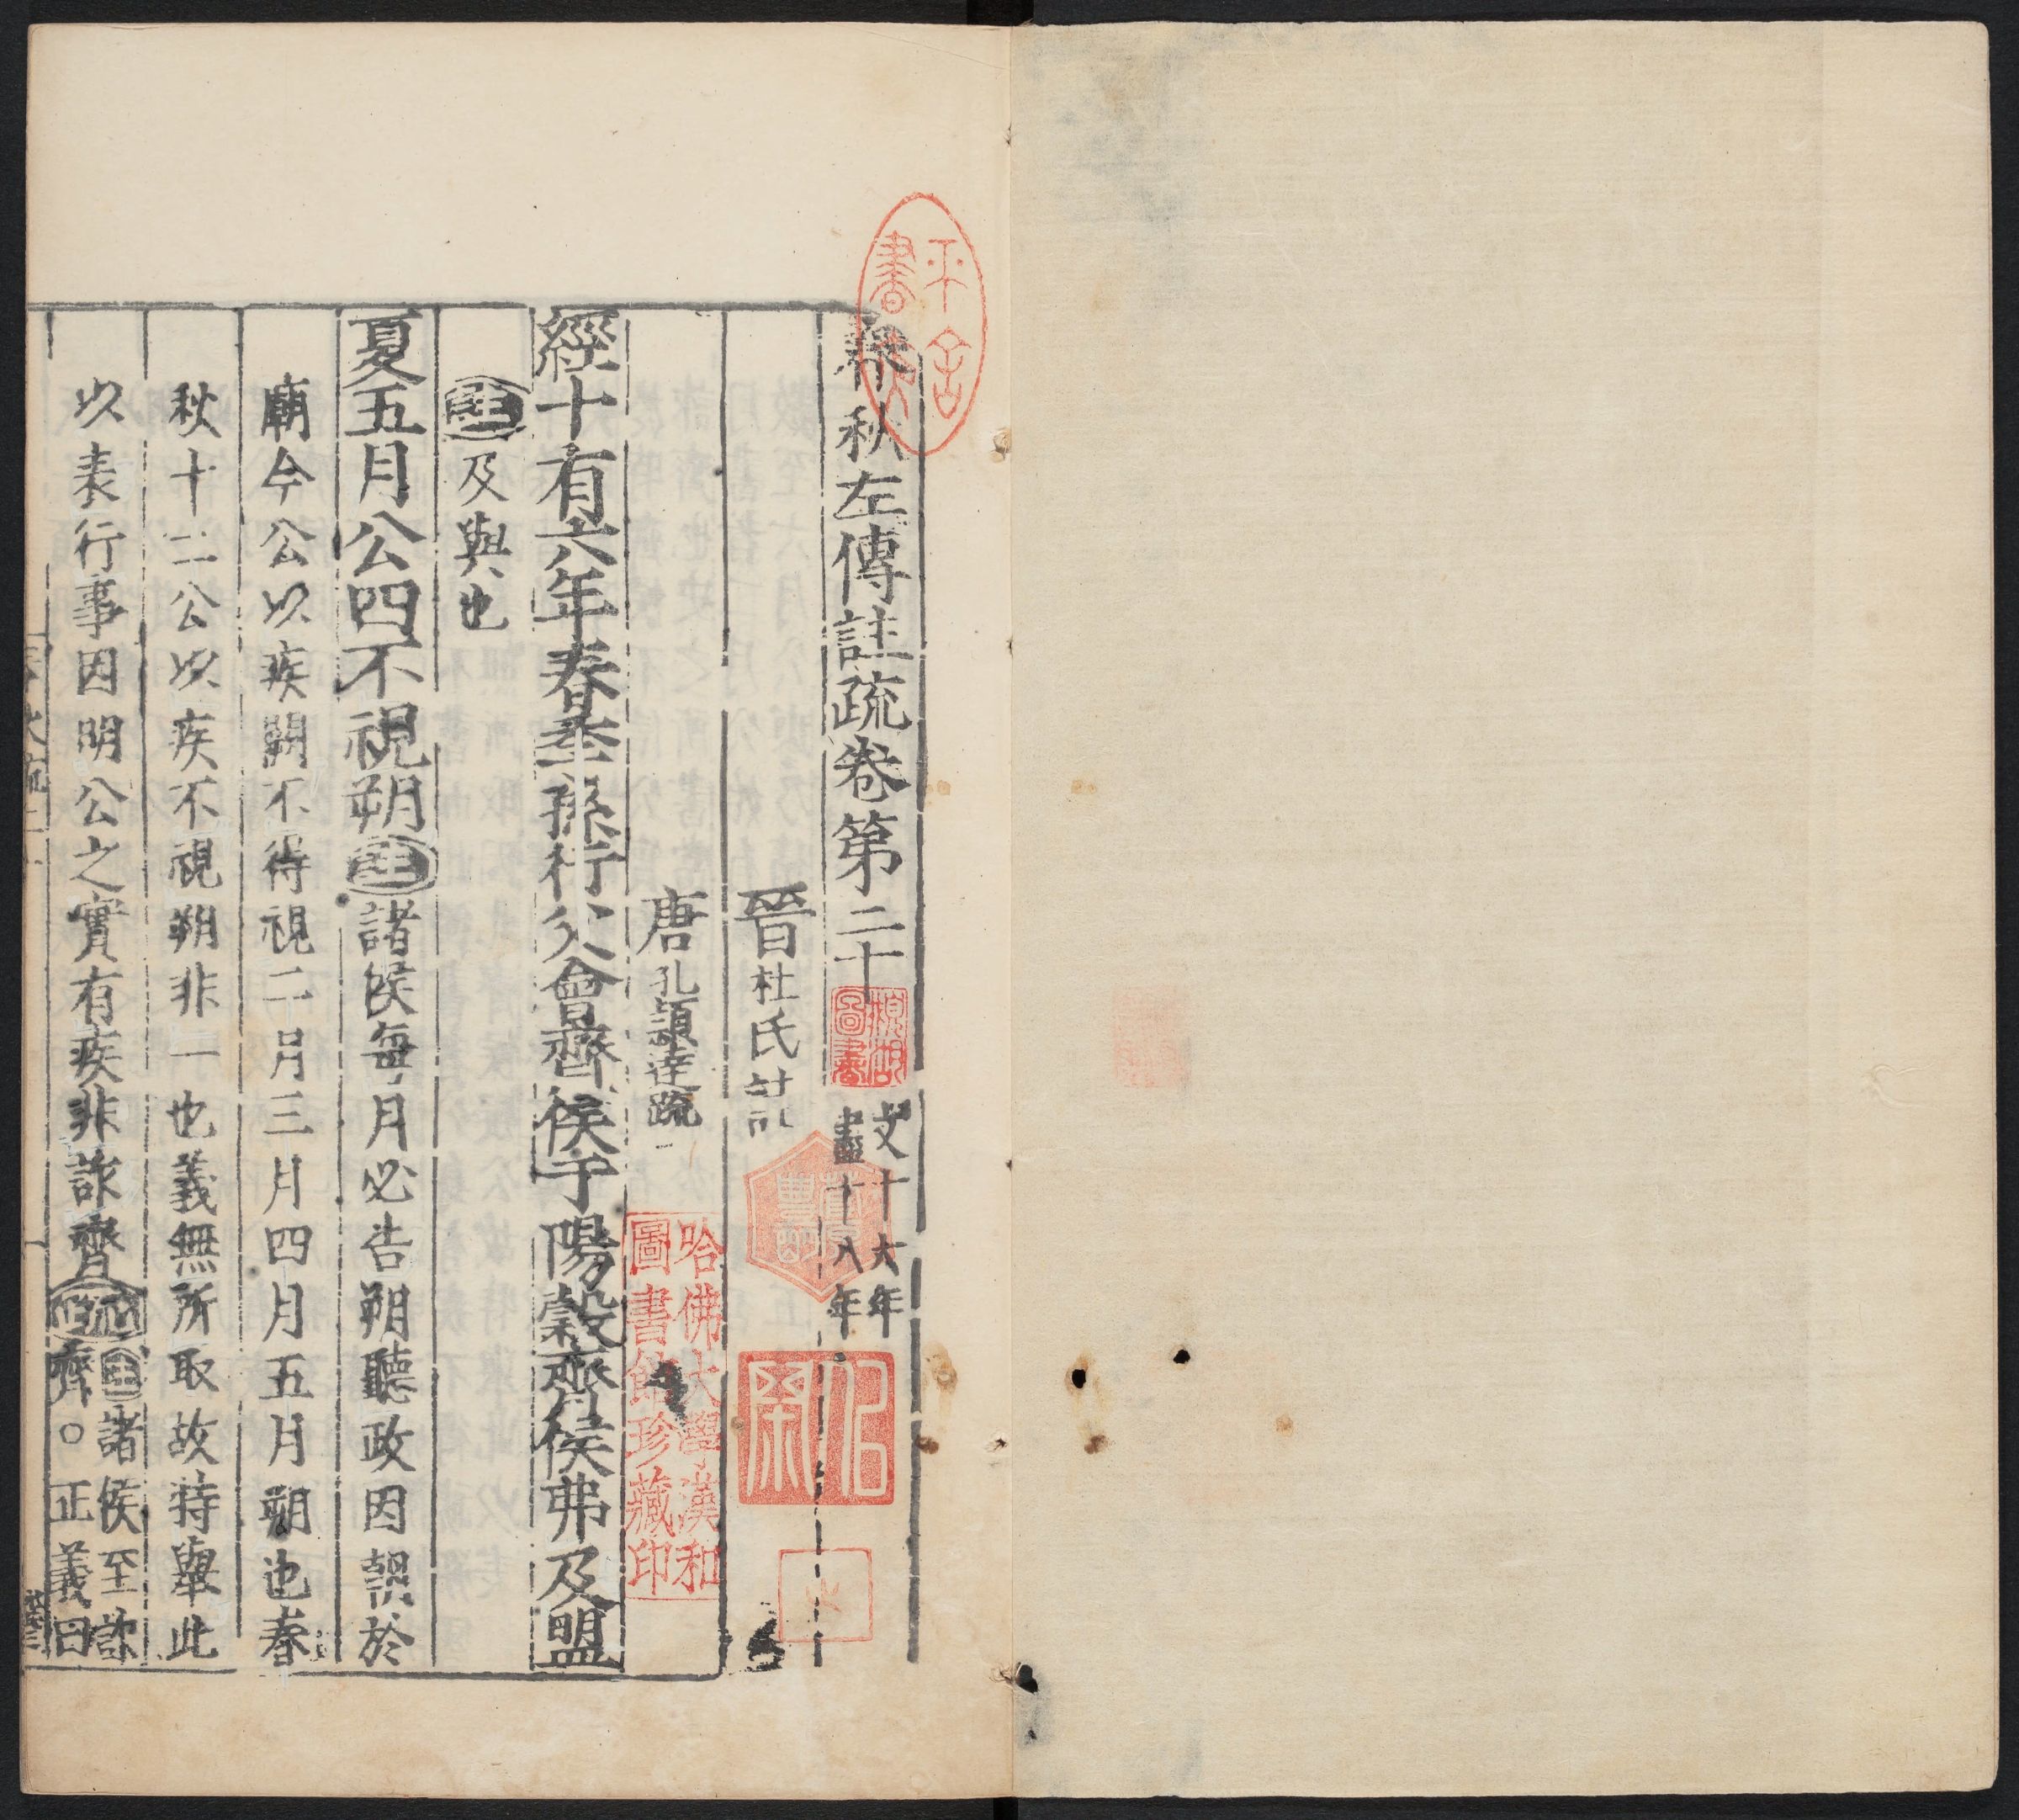 春秋左傳註疏卷第二十
文十六年
盡十八年
晉杜氏註
唐孔頴達疏
經十有六年春季孫行父會齊侯于陽穀齊侯弗及盟
註及與也
夏五月公四不視朔註諸侯每月必告朔聽政因朝於
廟今公以疾闕不得視二月三月四月五月朔也春
秋十二公以疾不視朔非一也義無所取故特舉此
以表行事因明公之實有疾非詐齊疏註諸侯至詐
齊○正義曰
平舍
書
圖書
哈佛大學漢和
圖書館珍藏印